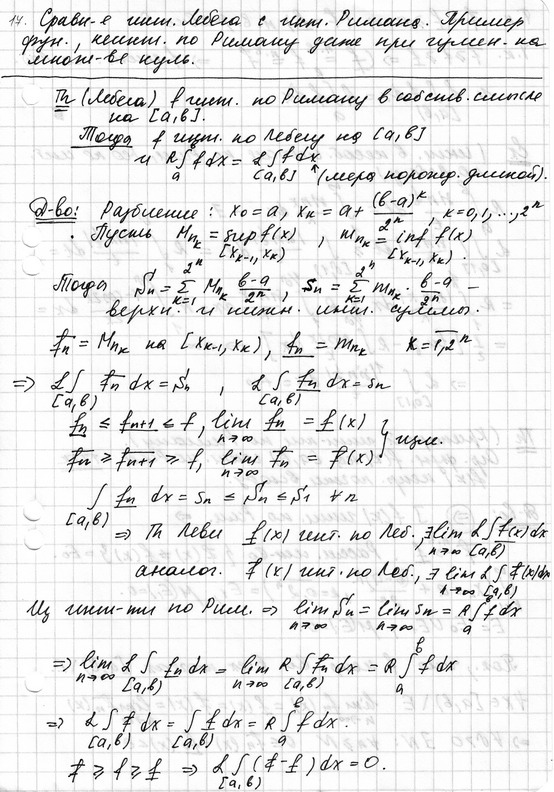 17. Сравн-е инт. Лебега с инт. Римана. Пример
фун., неинт. по Риману даже при измен. на
множ-ве нуль.
Th (Лебега) f инт. по Риману в собств. смысле
на [a,b].
Тогда f инт. по Лебегу на [a,b]
и R∫ₐᵇ f dx = L∫_[a,b] f dx (мера порожд. длиной).
Д-во: Разбиение: x₀ = a, xₖ = a + (b-a)k/2ⁿ, k=0,1,...,2ⁿ
Пусть M_nk = sup f(x) [x_k-1, x_k) , m_nk = inf f(x) [x_k-1, x_k).
Тогда Sn = Σ_{k=1}^{2ⁿ} M_nk (b-a)/2ⁿ, sn = Σ_{k=1}^{2ⁿ} m_nk · (b-a)/2ⁿ –
верхн. и нижн. инт. суммы.
f̅n = M_nk на [x_k-1, x_k), f̲n = m_nk k = 1,2ⁿ
⇒ L∫_[a,b) f̅n dx = Sn , L∫_[a,b) f̲n dx = sn
f̲n ≤ f̲n+1 ≤ f, lim_{n→∞} f̲n = f̲(x) } изм.
f̅n ≥ f̅n+1 ≥ f, lim_{n→∞} f̅n = f̅(x)
∫_[a,b) f̲n dx = sn ≤ Sn ≤ S1 ∀n
⇒ Th Леви f̲(x) инт. по Леб., ∃ lim_{n→∞} L∫_[a,b) f̲(x)dx
аналог. f̅(x) инт. по Леб., ∃ lim_{n→∞} L∫_[a,b) f̅(x)dx
Из инт-ти по Рим. ⇒ lim_{n→∞} Sn = lim_{n→∞} sn = R∫ₐᵇ f dx
⇒ lim_{n→∞} L∫_[a,b) f̲n dx = lim_{n→∞} R∫_[a,b) f̅n dx = R∫ₐᵇ f dx
⇒ L∫_[a,b) f̅ dx = ∫_[a,b) f̲ dx = R∫ₐᵇ f dx.
f̅ ≥ f ≥ f̲ ⇒ L∫_[a,b) (f̅ - f̲) dx = 0.